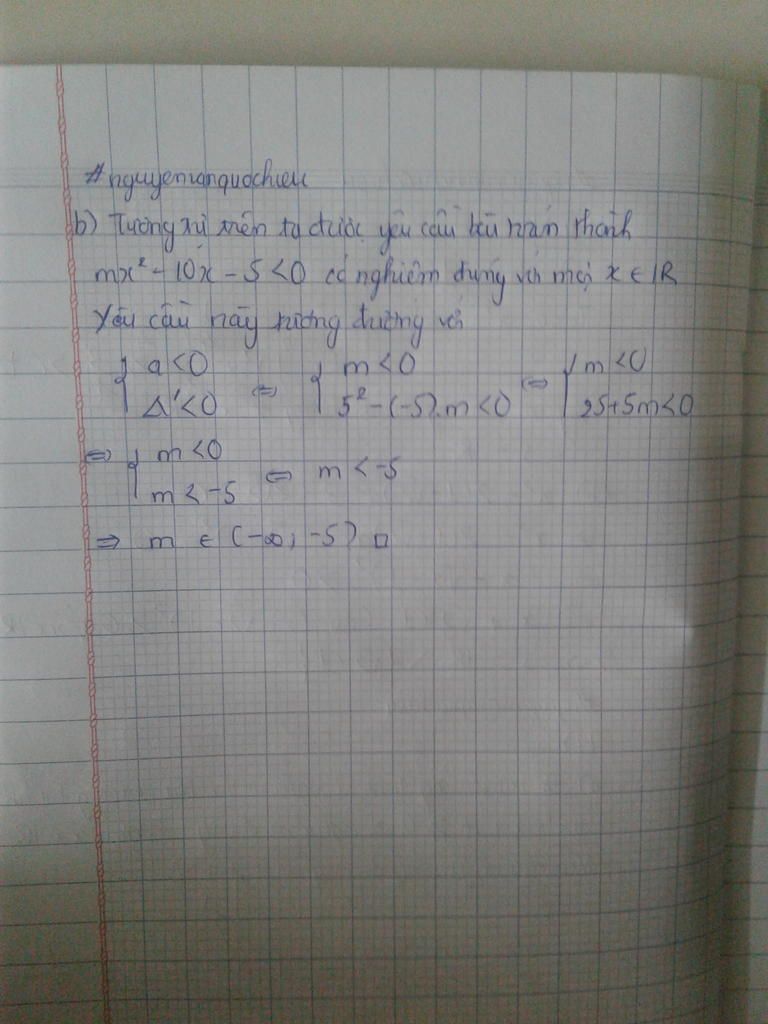 #nguyenvanquochieu
b) Tương tự trên ta được yêu cầu bài toán thành
mx² - 10x - 5 < 0 có nghiệm đúng với mọi x ∈ IR
Yêu cầu này tương đương với
{ a < 0 ; Δ' < 0 ⇔ { m < 0 ; 5² - (-5).m < 0 ⇔ { m < 0 ; 25 + 5m < 0
⇔ { m < 0 ; m < -5 ⇔ m < -5
⇒ m ∈ (-∞; -5) □